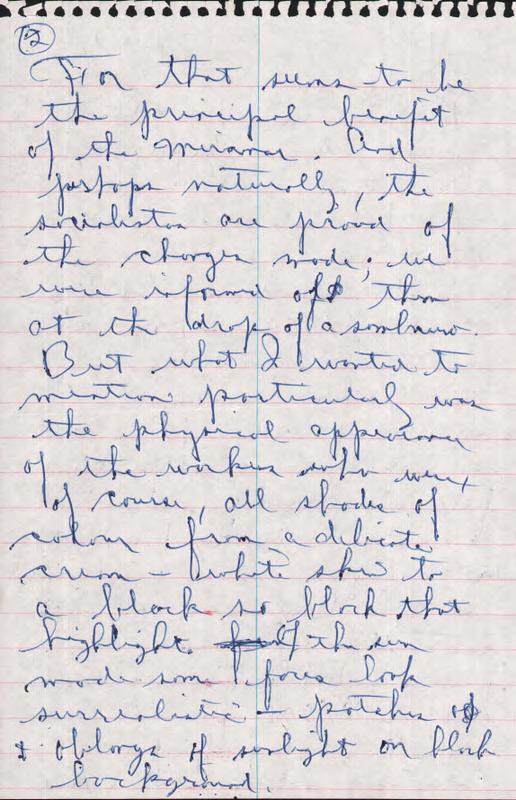 2
For that seems to be
the principal benefit
of the Miramar. And
perhaps naturally, the
socialistas are proud of
the changes made; we
were informed of them
at the drop of a sombrero.
But what I wanted to
mention particularly was
the physical appearance
of the workers who were,
of course, all shades of
colour from a delicate
cream-white skin to
a black so black that
highlights of the sun
made some faces look
surrealistic - patches
& oblongs of sunlight on black
background.